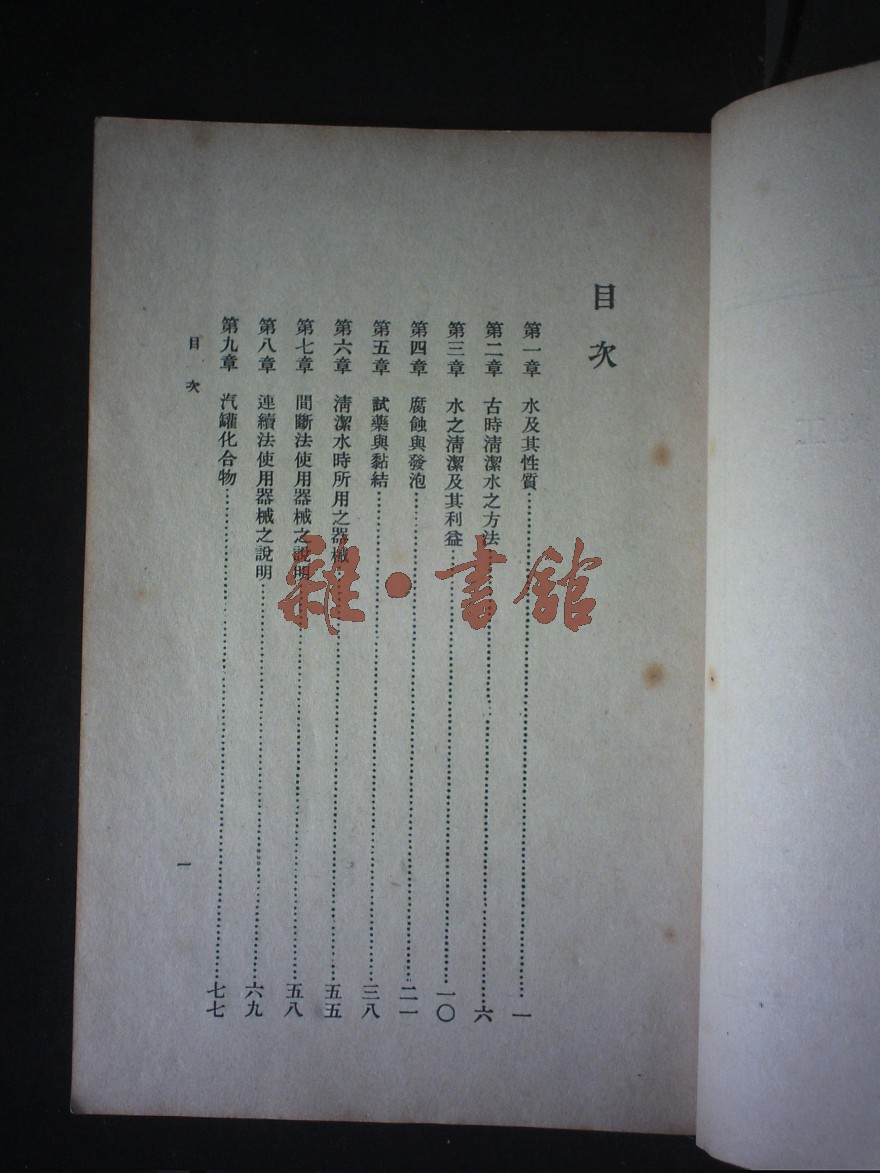 目次
第一章 水及其性質……一
第二章 古時淸潔水之方法……六
第三章 水之淸潔及其利益……一〇
第四章 腐蝕與發泡……二一
第五章 試藥與黏結……三八
第六章 淸潔水時所用之器械……五五
第七章 間斷法使用器械之說明……五八
第八章 連續法使用器械之說明……六九
第九章 汽罐化合物……七七
目次
一
雜·書館